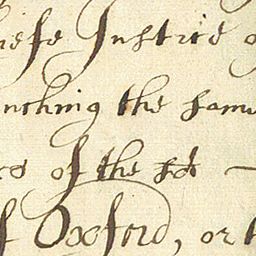 iefe Justice o
nching the same
es of the sd
f Oxford, or t